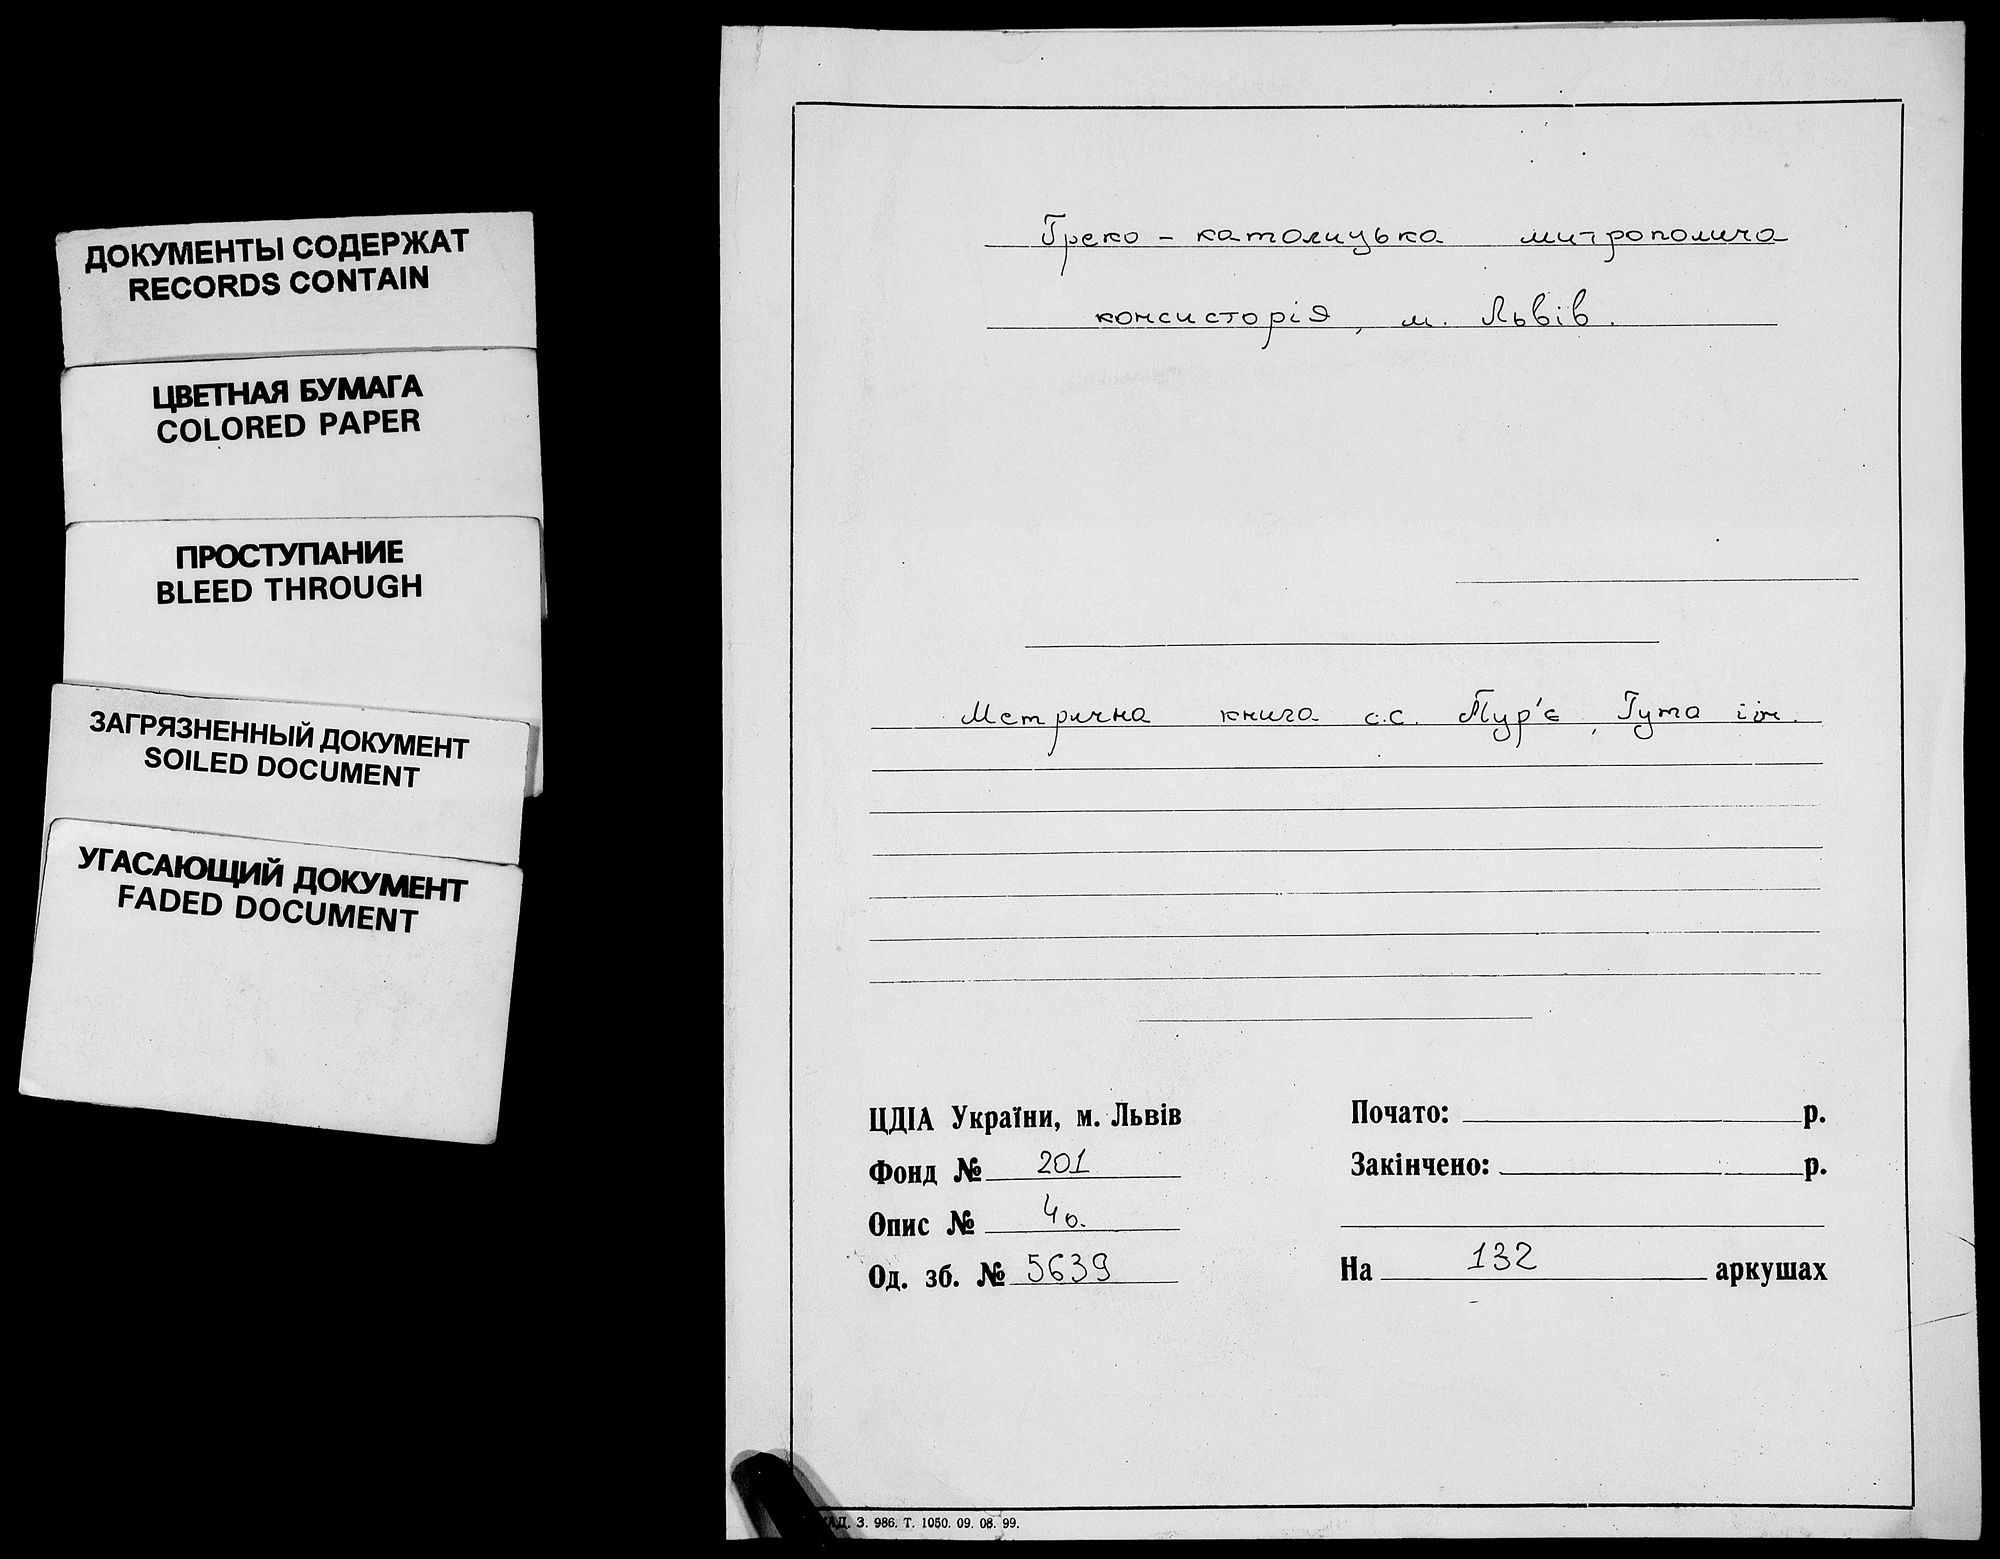 ДОКУМЕНТЫ СОДЕРЖАТ
RECORDS CONTAIN
ЦВЕТНАЯ БУМАГА
COLORED PAPER
ПРОСТУПАНИЕ
BLEED THROUGH
ЗАГРЯЗНЕННЫЙ ДОКУМЕНТ
SOILED DOCUMENT
УГАСАЮЩИЙ ДОКУМЕНТ
FADED DOCUMENT
Греко - католицька митрополича
консисторія, м. Львів.
Метрична книга с.с. Тур'є, Гута і ін.
ЦДІА України, м. Львів
Фонд № 201
Опис № 4а.
Од. зб. № 5639
Почато: р.
Закінчено: р.
На 132 аркушах
З. 986. Т. 1050. 09. 08. 99.